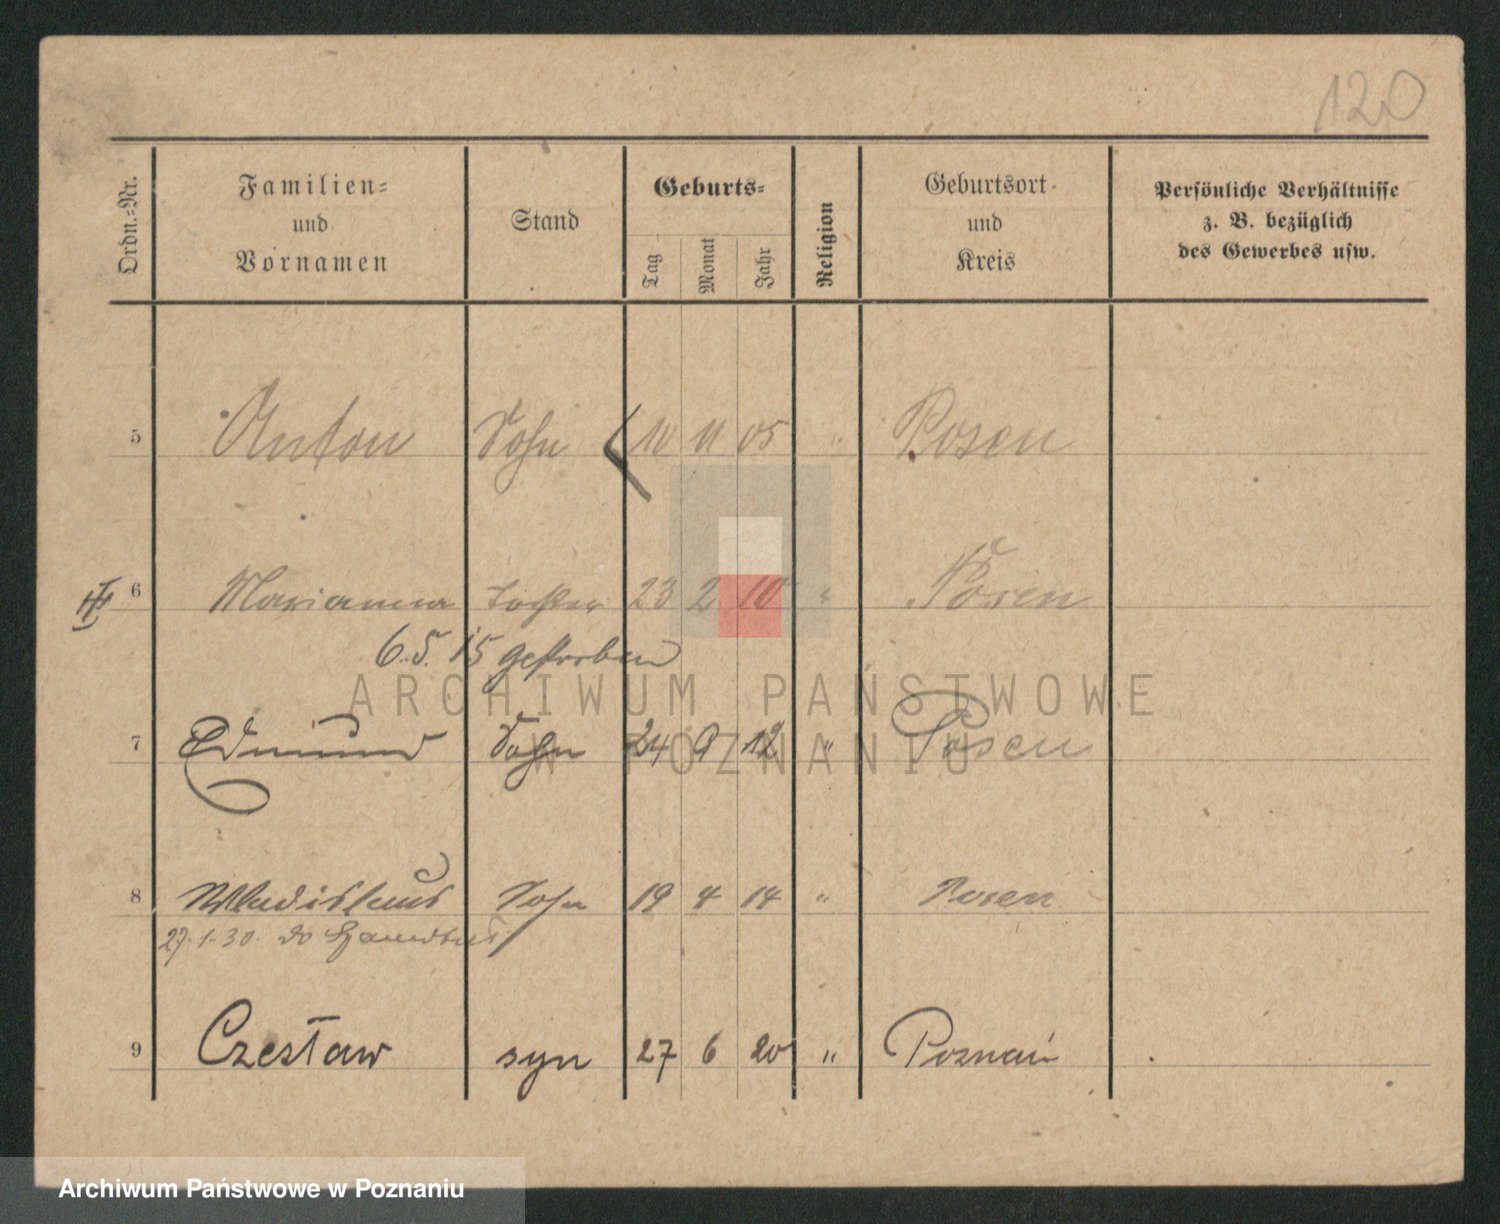 120
Ordn.-Nr. Familien- und Vornamen Stand Geburts- Tag Monat Jahr Religion Geburtsort und Kreis Persönliche Verhältnisse z. B. bezüglich des Gewerbes usw.
5 Anton Sohn 10 11 05 " Posen
6 Marianna Tochter 23 2 10 " Posen
6.5.15 gestorben
ARCHIWUM PAŃSTWOWE
W POZNANIU
7 Edmund Sohn 24 9 12 " Posen
8 Wladislaus Sohn 19 4 14 " Posen
27.1.30. do
9 Czesław syn 27 6 20 " Poznań
Archiwum Państwowe w Poznaniu